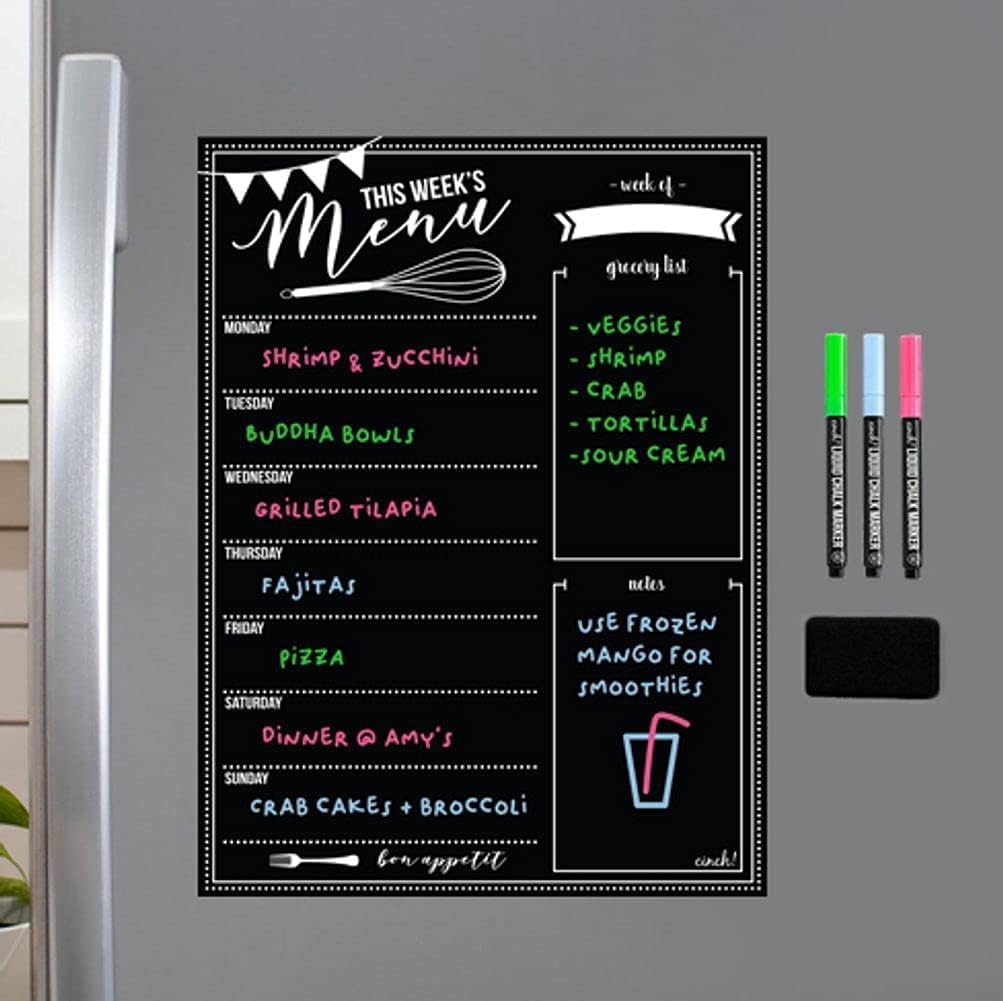 THIS WEEK'S
Menu
MONDAY
SHRIMP & ZUCCHINI
TUESDAY
BUDDHA BOWLS
WEDNESDAY
GRILLED TILAPIA
THURSDAY
FAJITAS
FRIDAY
PIZZA
SATURDAY
DINNER @ AMY'S
SUNDAY
CRAB CAKES + BROCCOLI
bon appetit
- week of -
grocery list
- VEGGIES
- SHRIMP
- CRAB
- TORTILLAS
-SOUR CREAM
notes
USE FROZEN
MANGO FOR
SMOOTHIES
cinch!
cinch! LIQUID CHALK MARKER
cinch! LIQUID CHALK MARKER
cinch! LIQUID CHALK MARKER